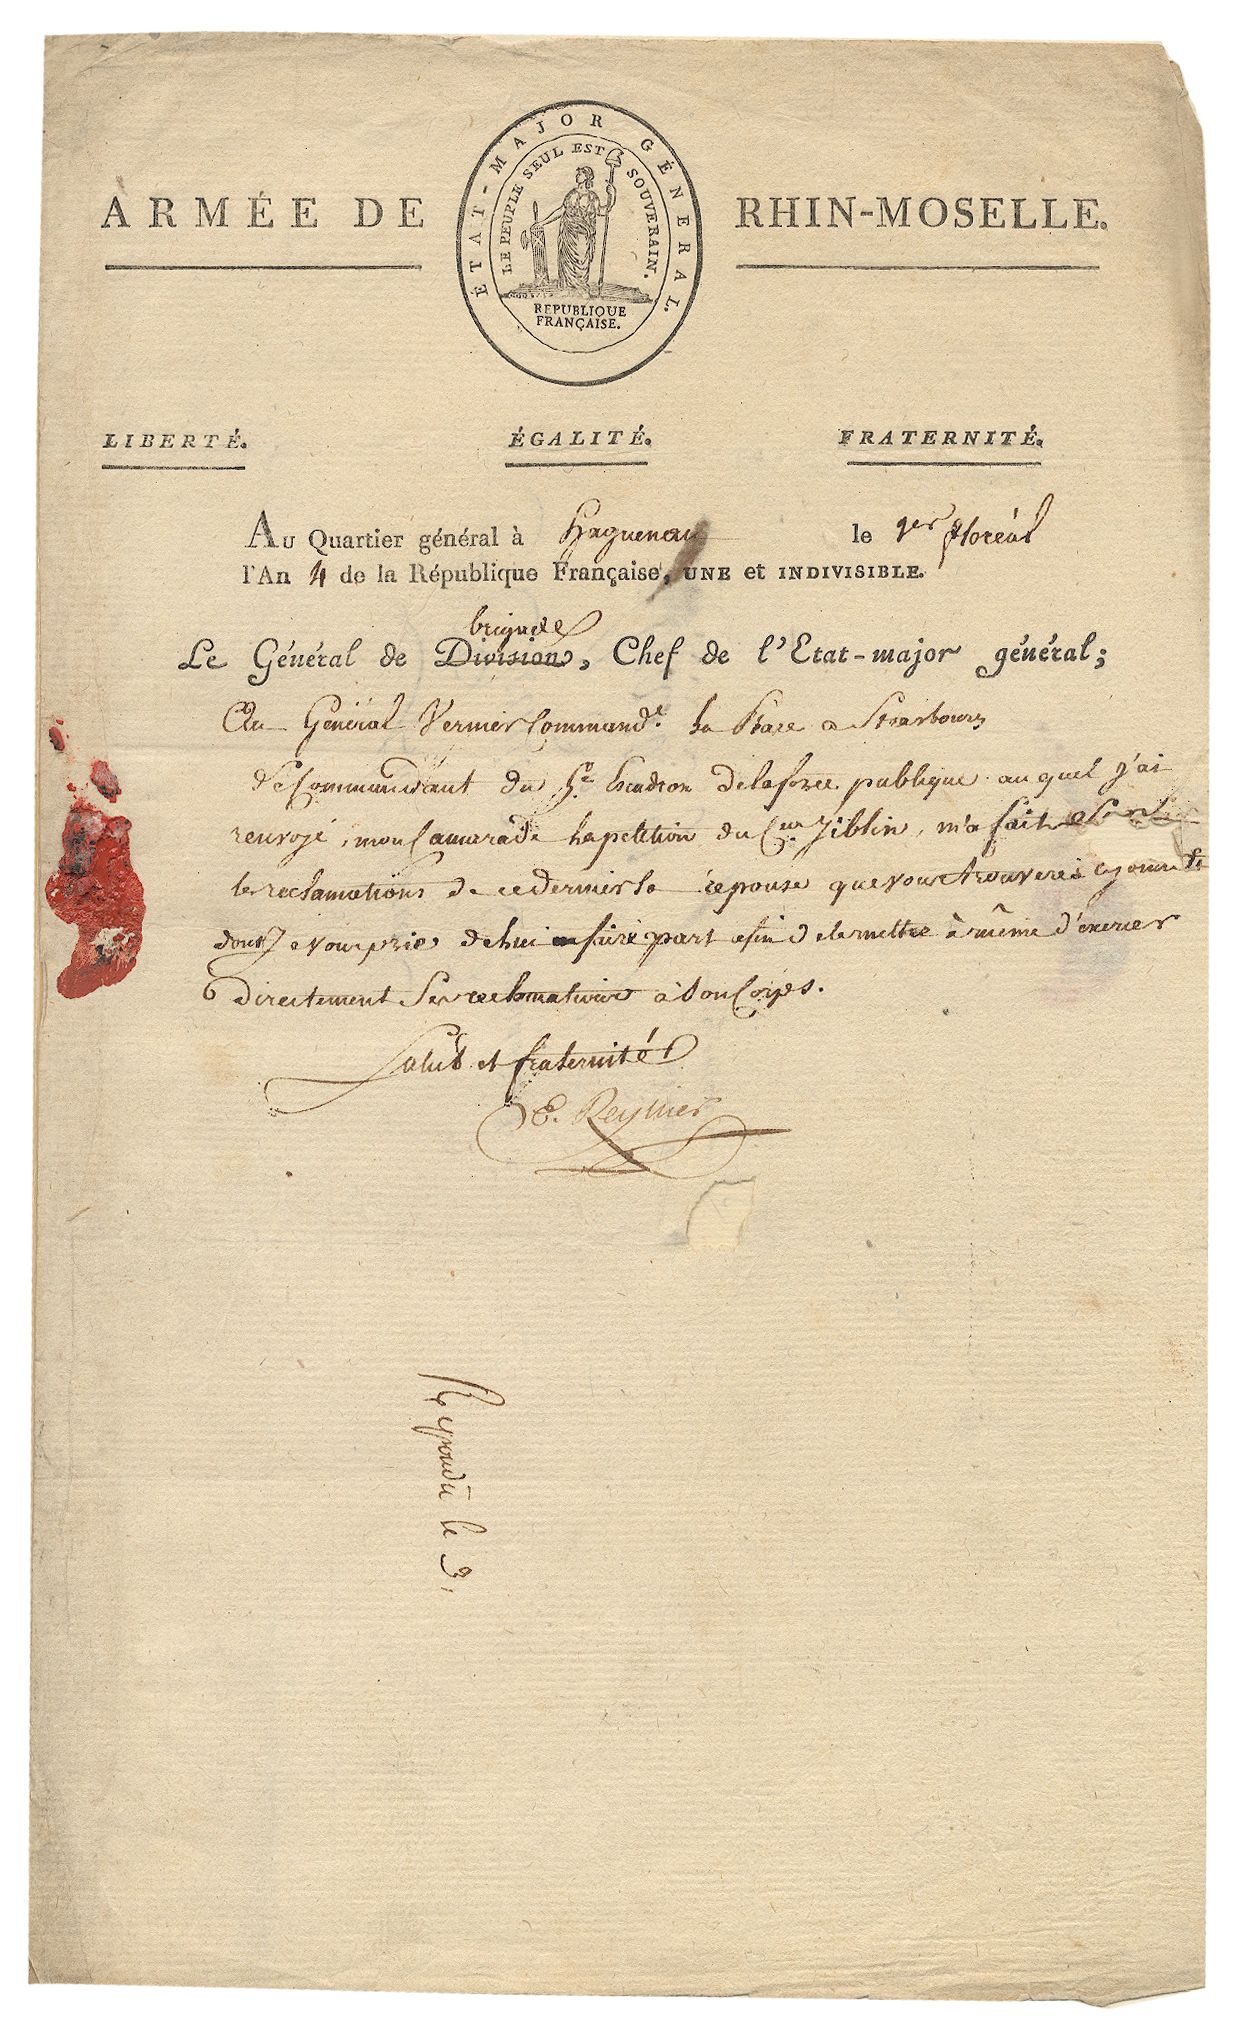 ÉTAT-MAJOR GÉNÉRAL.
LE PEUPLE SEUL EST SOUVERAIN.
REPUBLIQUE
FRANÇAISE.
ARMÉE DE RHIN-MOSELLE.
LIBERTÉ. ÉGALITÉ. FRATERNITÉ.
Au Quartier général à Haguenau le 1er floréal
l'An 4 de la République Française, UNE et INDIVISIBLE.
brigade
Le Général de Division, Chef de l'Etat-major général;
Au Général Vernier Command.t la Place a Strasbourg
Le Commandant du 5.e Escadron de la force publique auquel j'ai
renvoyé, mon Camarade la petition du C.en Ziblin, m'a fait
les reclamations de ce dernier la reponse que vous trouverés cy jointe
dont Je vous prie de lui faire part afin de le mettre à même d'
directement Ses reclamations à son Corps.
Salut et fraternité
E. Reynier
Repondu le 3.